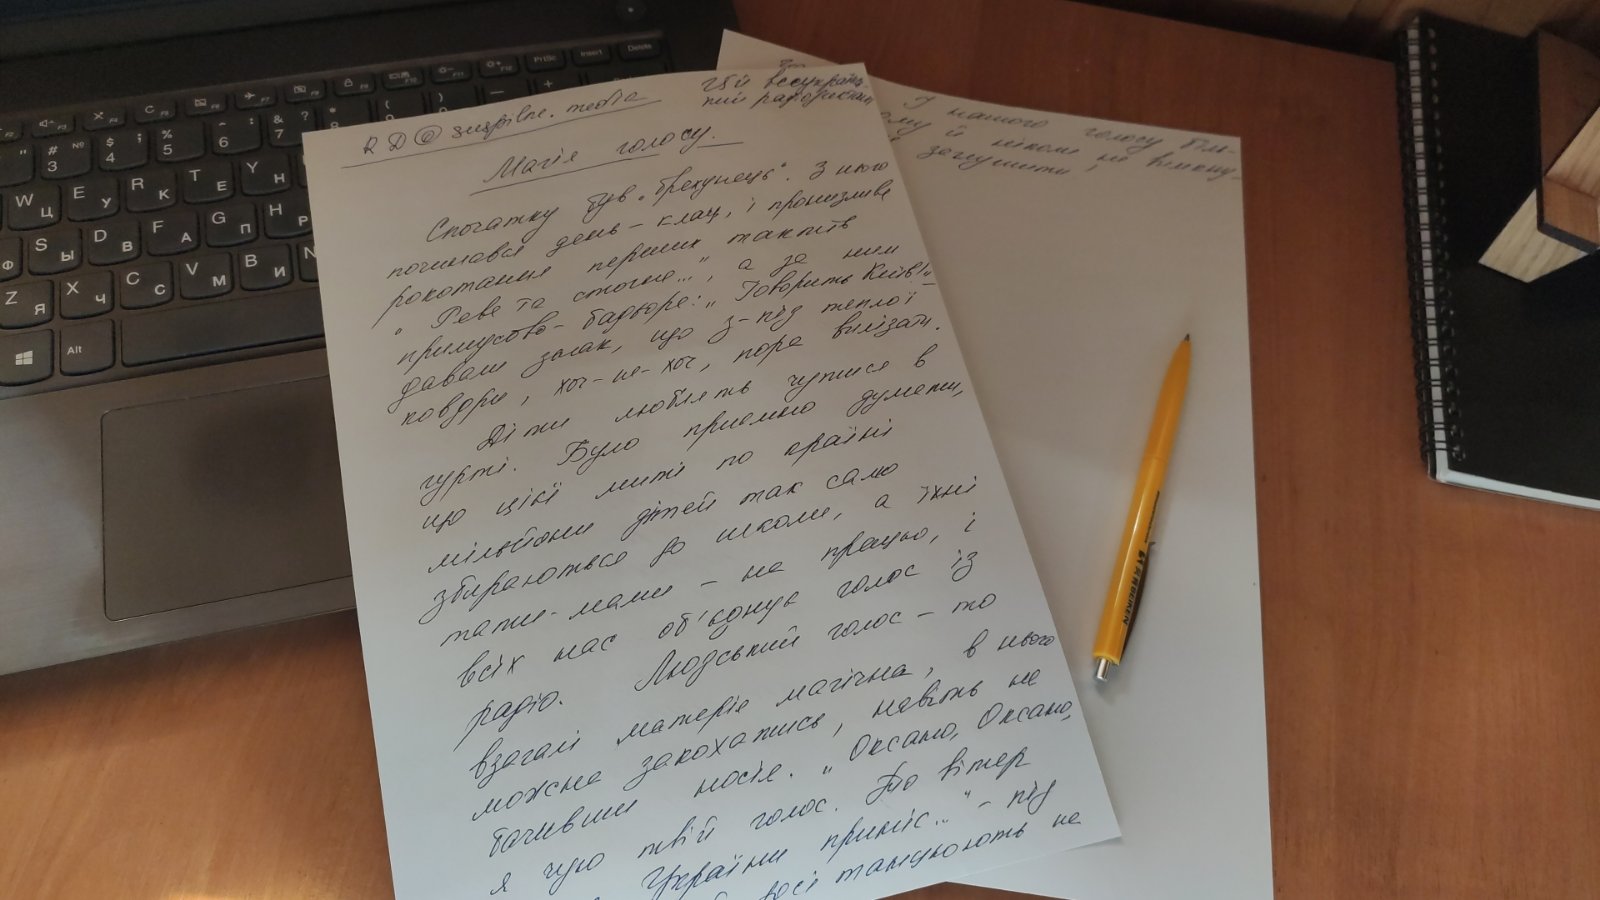 RD@suspilne.media
всеукраїн-
ний радіодиктант
Магія голосу.
Спочатку був „брехунець“. З нього
починався день – клац, і пронизливе
рокотання перших тактів
„Реве та стогне...“, а за ним
примусово-бадьоре: „Говорить Київ!“ –
давали знак, що з-під теплої
ковдри, хоч-не-хоч, пора вилізати.
Діти люблять чутися в
гурті. Було приємно думати,
що цієї миті по країні
мільйони дітей так само
збираються до школи, а їхні
тати-мами – на працю, і
всіх нас об'єднує голос із
радіо. Людський голос – то
взагалі матерія магічна, в нього
можна закохатись, навіть не
бачивши носія. „Оксано, Оксано,
я чую твій голос. То вітер
України приніс...“ – під
всі танцюють на
І нашого голосу біль-
ніколи не вімкну-
заглушити!
Delete
Insert
PrtSc
Alt